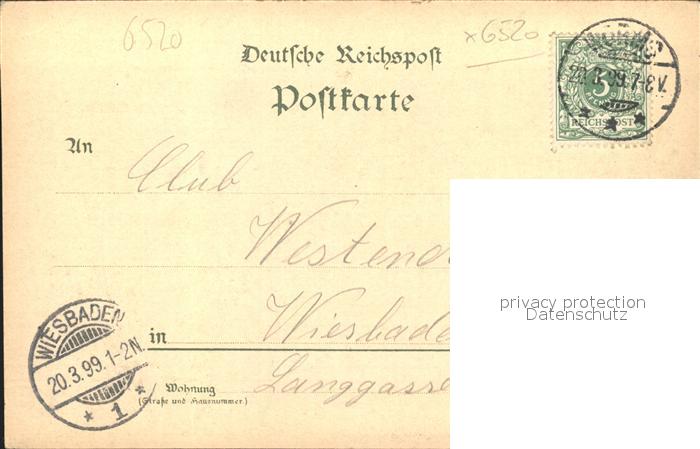 6520
x6520
Deutsche Reichspost
Postkarte
5
REICHSPOST
20.3.99.7-8V.
An
Club
Westend
Wiesbade
in
Langgasse
Wohnung
(Straße und Hausnummer.)
WIESBADEN
20.3.99.1-2N.
* 1 *
privacy protection
Datenschutz